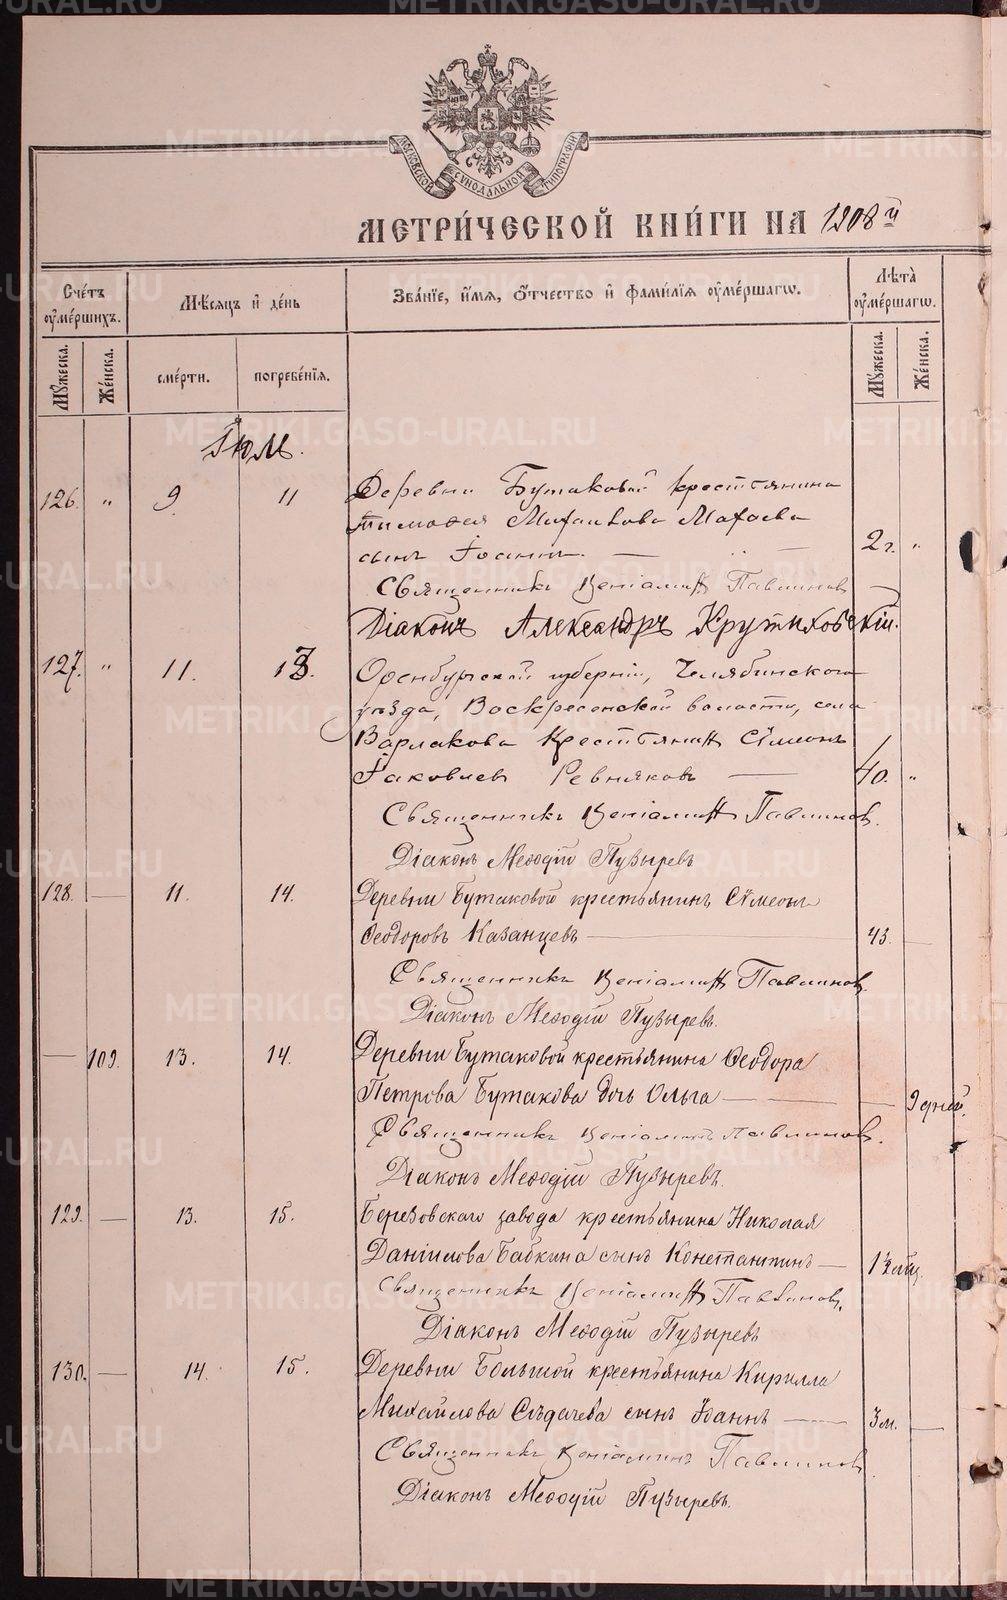 МОСКОВСКОЙ СѴНОДАЛЬНОЙ ТИПОГРАФІИ
МЕТРИ́ЧЕСКОЙ КНИ́ГИ НА 1908 й
Сче́тъ оуме́ршихъ.
Мѣсяцъ и день
Зва́нїе, и́мя, о́тчество и фами́лїя оуме́ршагѡ.
Лѣта̀ оуме́ршагѡ.
Мꙋ́жеска.
Же́нска.
сме́рти.
погребе́нїя.
Мꙋ́жеска.
Же́нска.
Іюль.
126. " 9 11 Деревни Бутаковой крестьянина
Тимофея Михаилова
сынъ Іоаннъ. — 2 г. "
Священникъ Веніаминъ Павлинов
Діаконъ Александръ Крутиховскій.
127. " 11. 13. Оренбургской губерніи, Челябинского
уѣзда, Воскресенской волости, села
Варлакова Крестьянинъ Сѵмеонъ
Іаковлев Ревняковъ — 40. "
Священникъ Веніаминъ Павлинов.
Діаконъ Меѳодій Пузыревъ
128. — 11. 14. Деревни Бутаковой крестьянинъ Сѵмеонъ
Ѳеодоровъ Казанцевъ — 43. —
Священникъ Веніаминъ Павлинов
Діаконъ Меѳодій Пузыревъ.
— 109. 13. 14. Деревни Бутаковой крестьянина Ѳеодора
Петрова Бутакова дочь Ольга — — 9 дней.
Священникъ Веніаминъ Павлинов.
Діаконъ Меѳодій Пузыревъ.
129. — 13. 15. Березовскаго завода крестьянина Николая
Даніилова Бабкина сынъ Константинъ —
Священникъ Веніаминъ Павлинов.
Діаконъ Меѳодій Пузыревъ
130. — 14. 15. Деревни Большой крестьянина Кирилла
Михайлова Слѣдачева сынъ Іоаннъ — 3 м. —
Священникъ Веніаминъ Павлинов
Діаконъ Меѳодій Пузыревъ.
METRIKI.GASO-URAL.RU